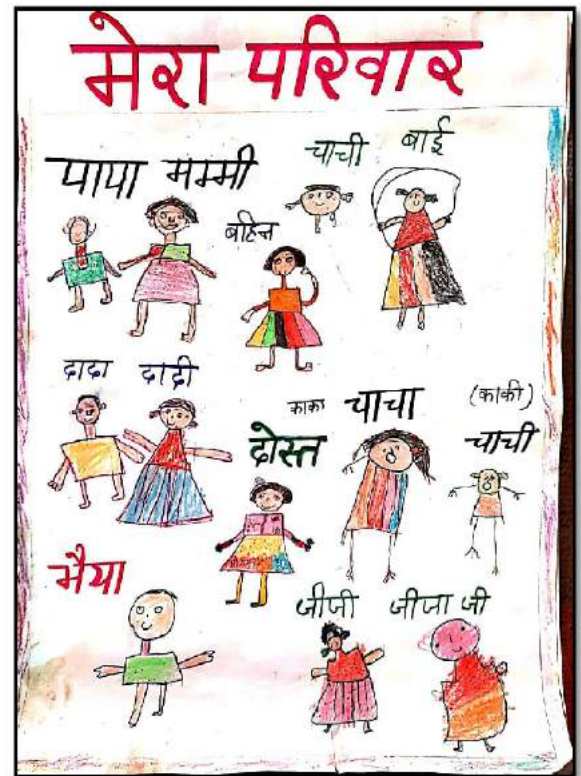 मेरा परिवार
पापा मम्मी
चाची बाई
बहिन
दादा दादी
काका चाचा
(काकी)
चाची
दोस्त
भैया
जीजी जीजा जी